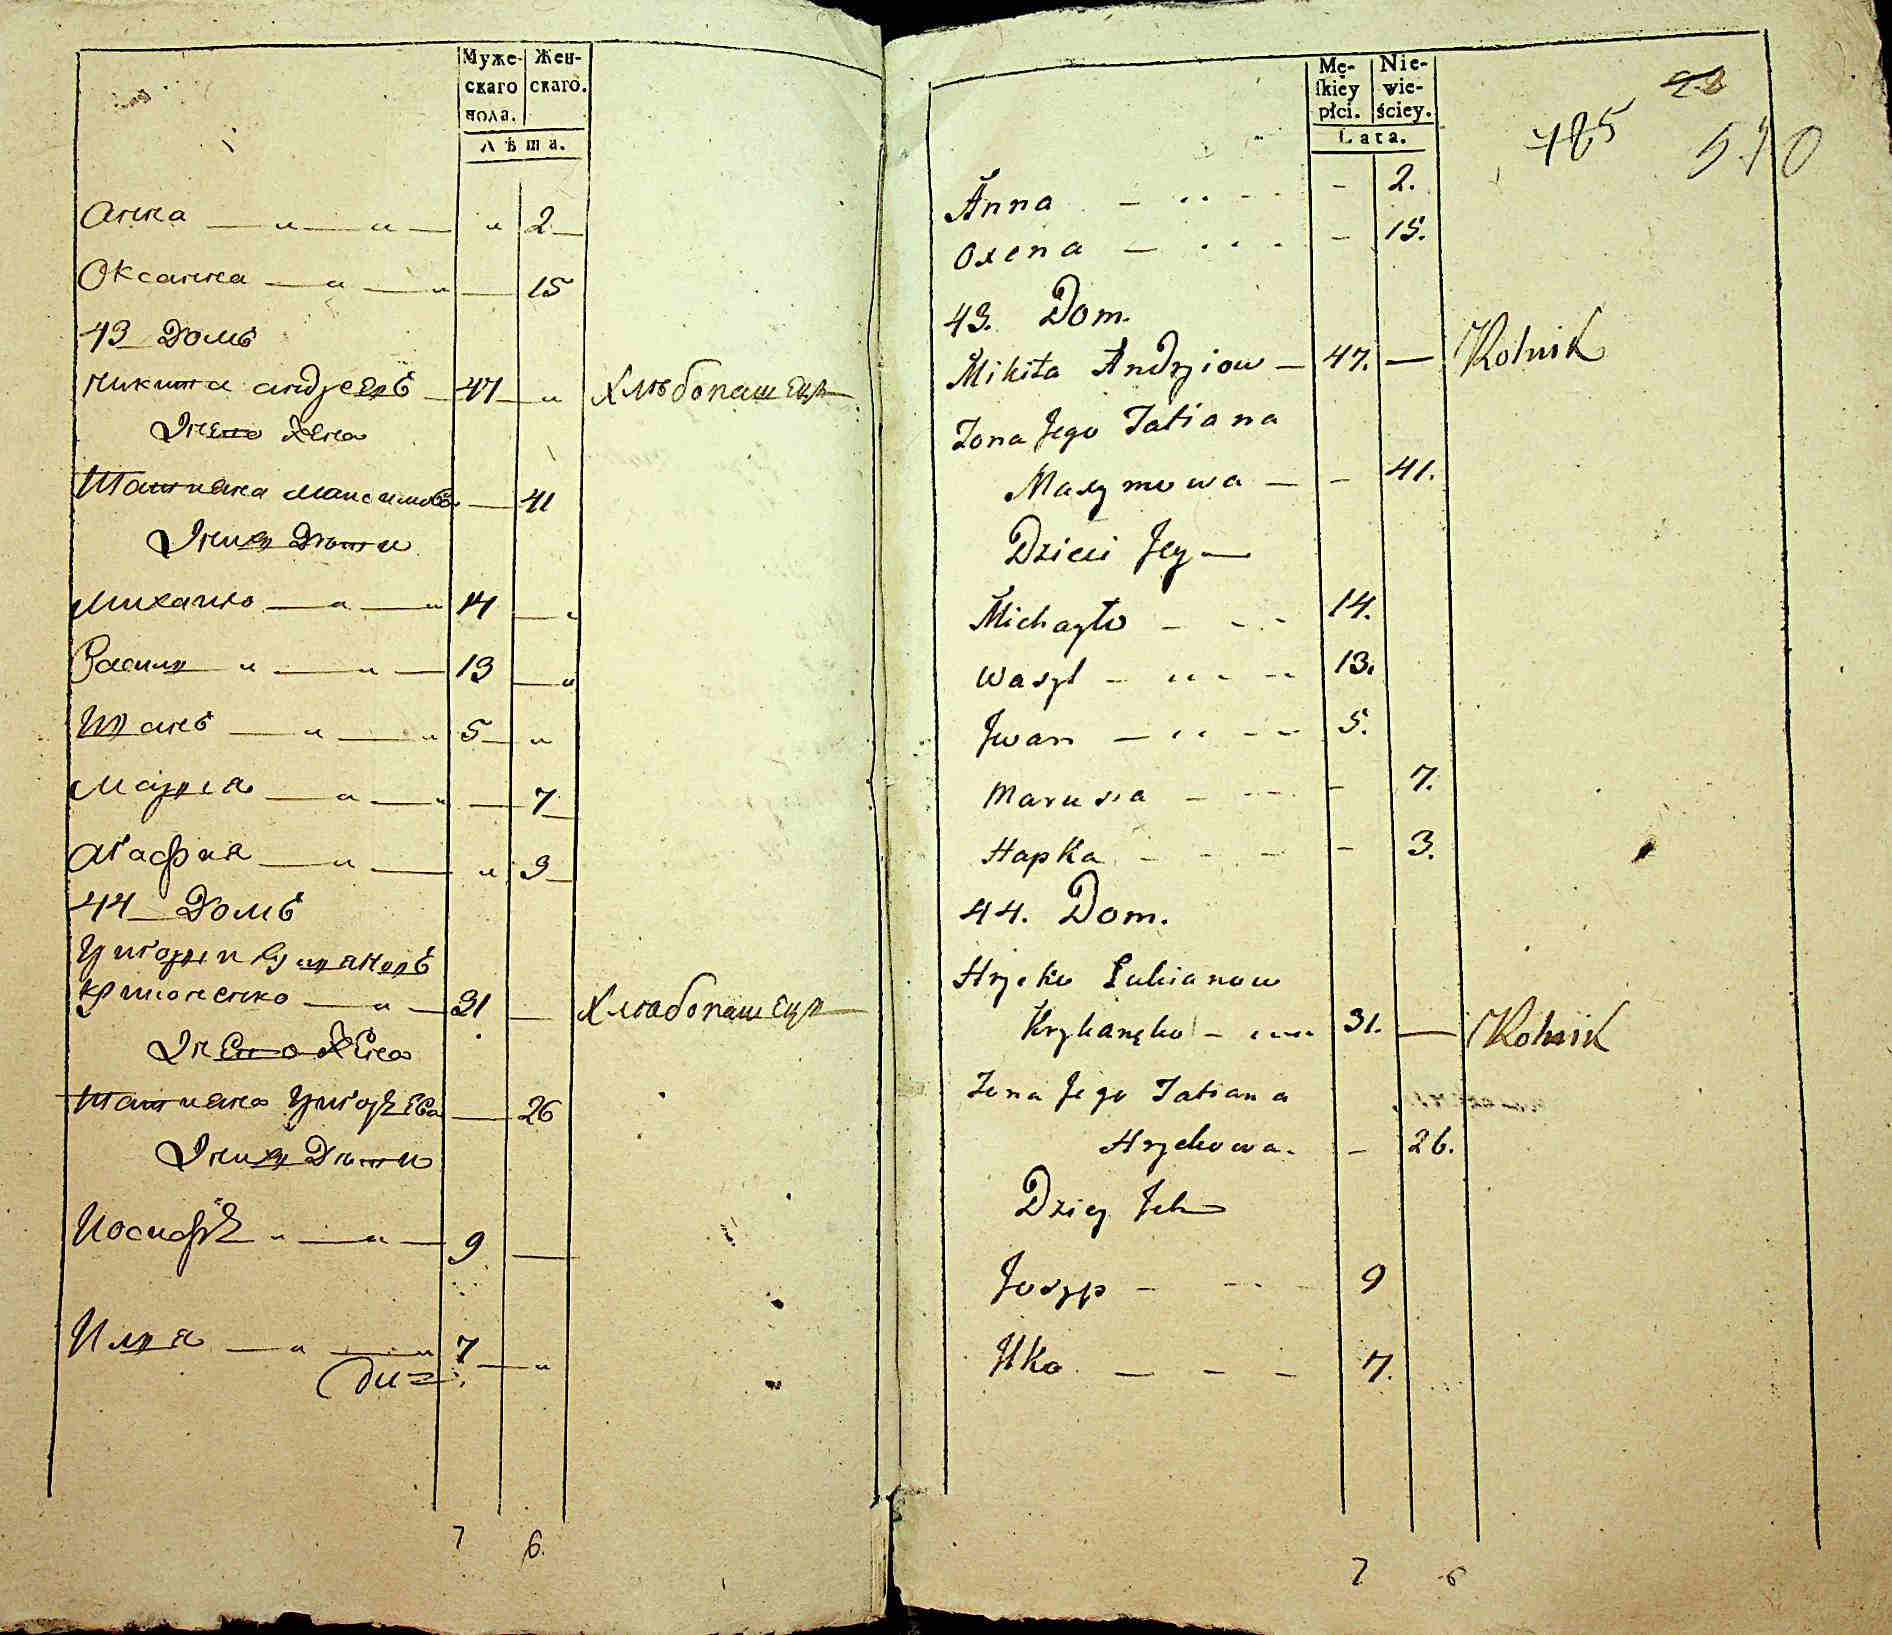 Муже-
скаго
пола.
Жен-
скаго.
Лѣта.
Анна 2
Оксанна 15
43 Домъ
Никита Андреевъ 47 Хлѣбопашецъ
Жена
Татиана Максимова 41
Дѣти
Михаило 14
Василь 13
Иванъ 5
Марья 7
Агафия 3
44 Домъ
Григорий
31 Хлѣбопашецъ
Жена
Татиана Григорьева 26
Дѣти
Иосифъ 9
Илья 7
7 6.
Mę-
skiey
płci.
Nie-
wie-
ściey.
Lata.
485 510
Anna - 2.
Oxena - 15.
43. Dom.
Mikita Andrziow 47. — Rolnik
Zona Jego Tatiana
Maxymowa - 41.
Dzieci Jey
Michayło 14.
Wasyl 13.
Jwan 5.
Marusia - 7.
Hapka - 3.
44. Dom.
Hryćko Lukianow
31. — Rolnik
Zona Jego Tatiana
Hryckowa. - 26.
Josyp 9
Ilko 7.
7 6